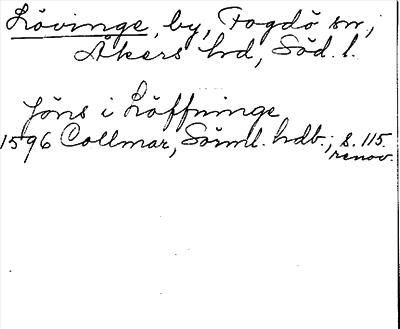 Lövinge, by, Fogdö sn,
Åkers hd, Söd. l.
Jöns i Löffninge
1596 Collmar, Sörml. hdb., s. 115.
renov.